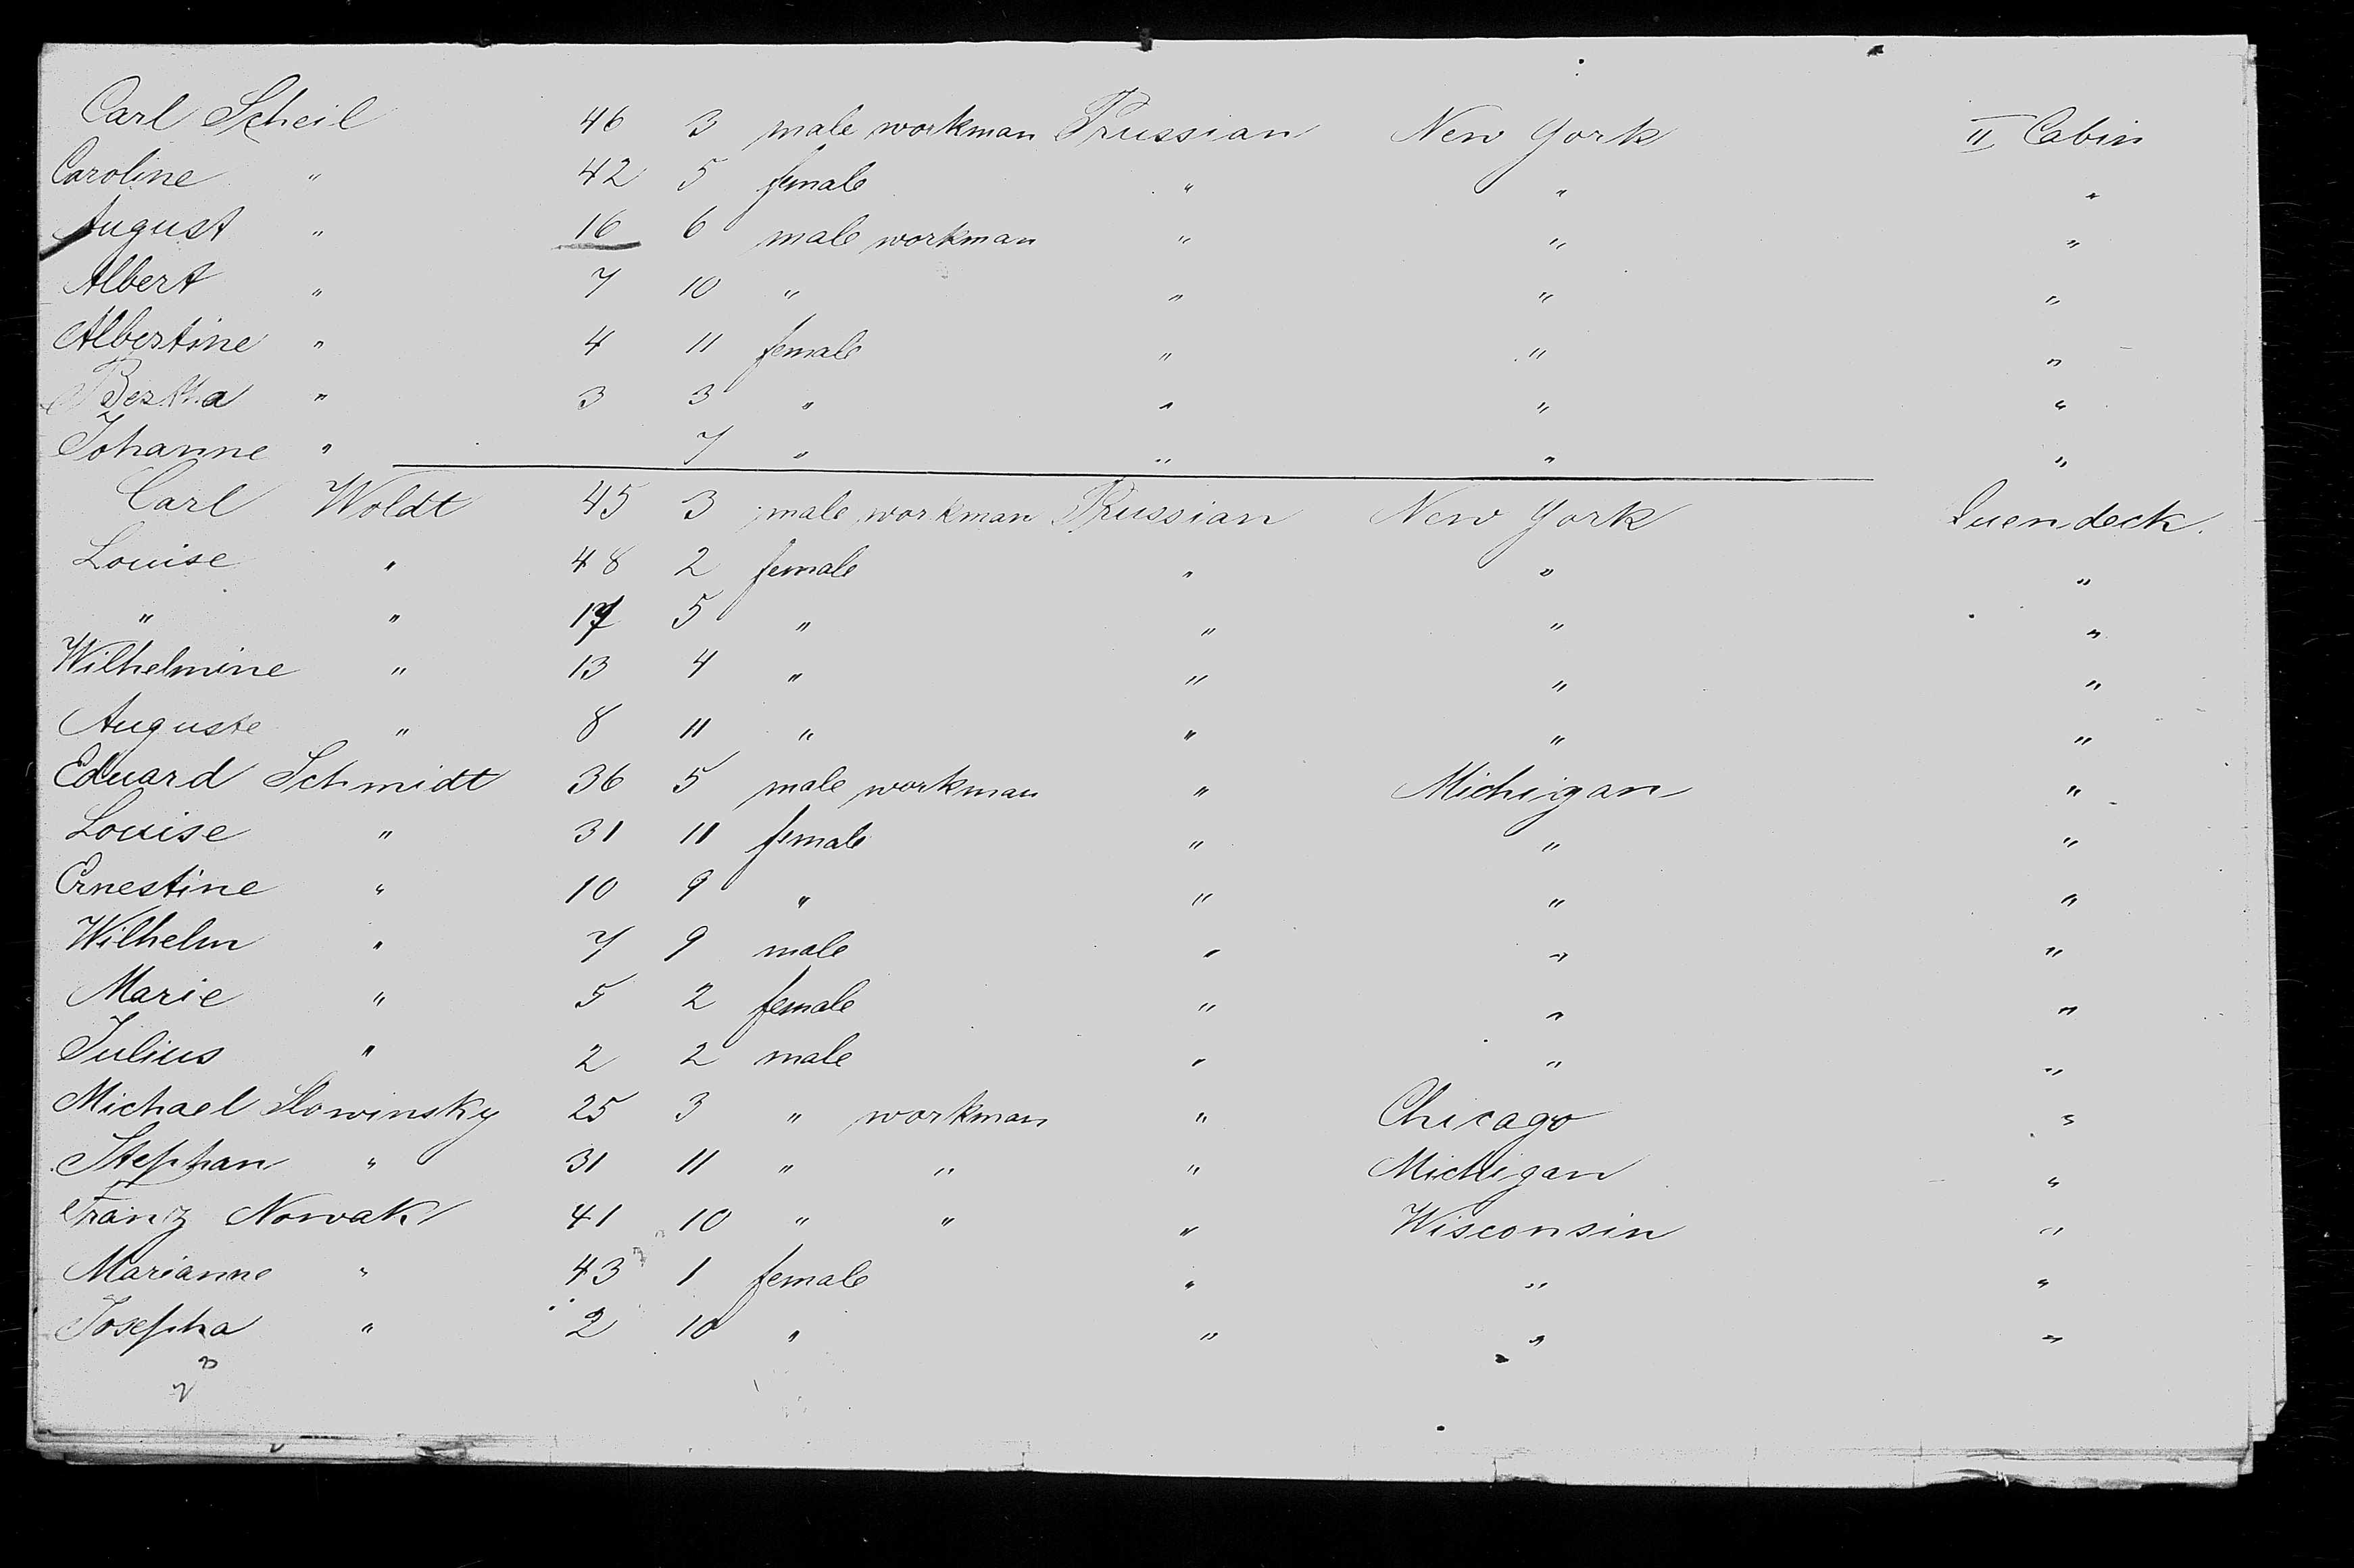 Carl Scheil 46 3 male workman Prussian New York II Cabin
Caroline " 42 5 female " " "
August " 16 6 male workman " " "
Albert " 7 10 " " " "
Albertine " 4 11 female " " "
Bertha " 3 3 " " " "
Johanne " 7 " " " "
Carl Woldt 45 3 male workman Prussian New York deck.
Louise " 48 2 female " " "
" " 17 5 " " " "
Wilhelmine " 13 4 " " " "
Auguste " 8 11 " " " "
Eduard Schmidt 36 5 male workman " Michigan "
Louise " 31 11 female " " "
Ernestine " 10 9 " " " "
Wilhelm " 7 9 male " " "
Marie " 5 2 female " " "
Julius " 2 2 male " " "
Michael Slowinsky 25 3 " workman " Chicago "
Stephan " 31 11 " " " Michigan "
Franz Nowak 41 10 " " " Wisconsin "
Marianne " 43 1 female " " "
Josepha " 2 10 " " " "